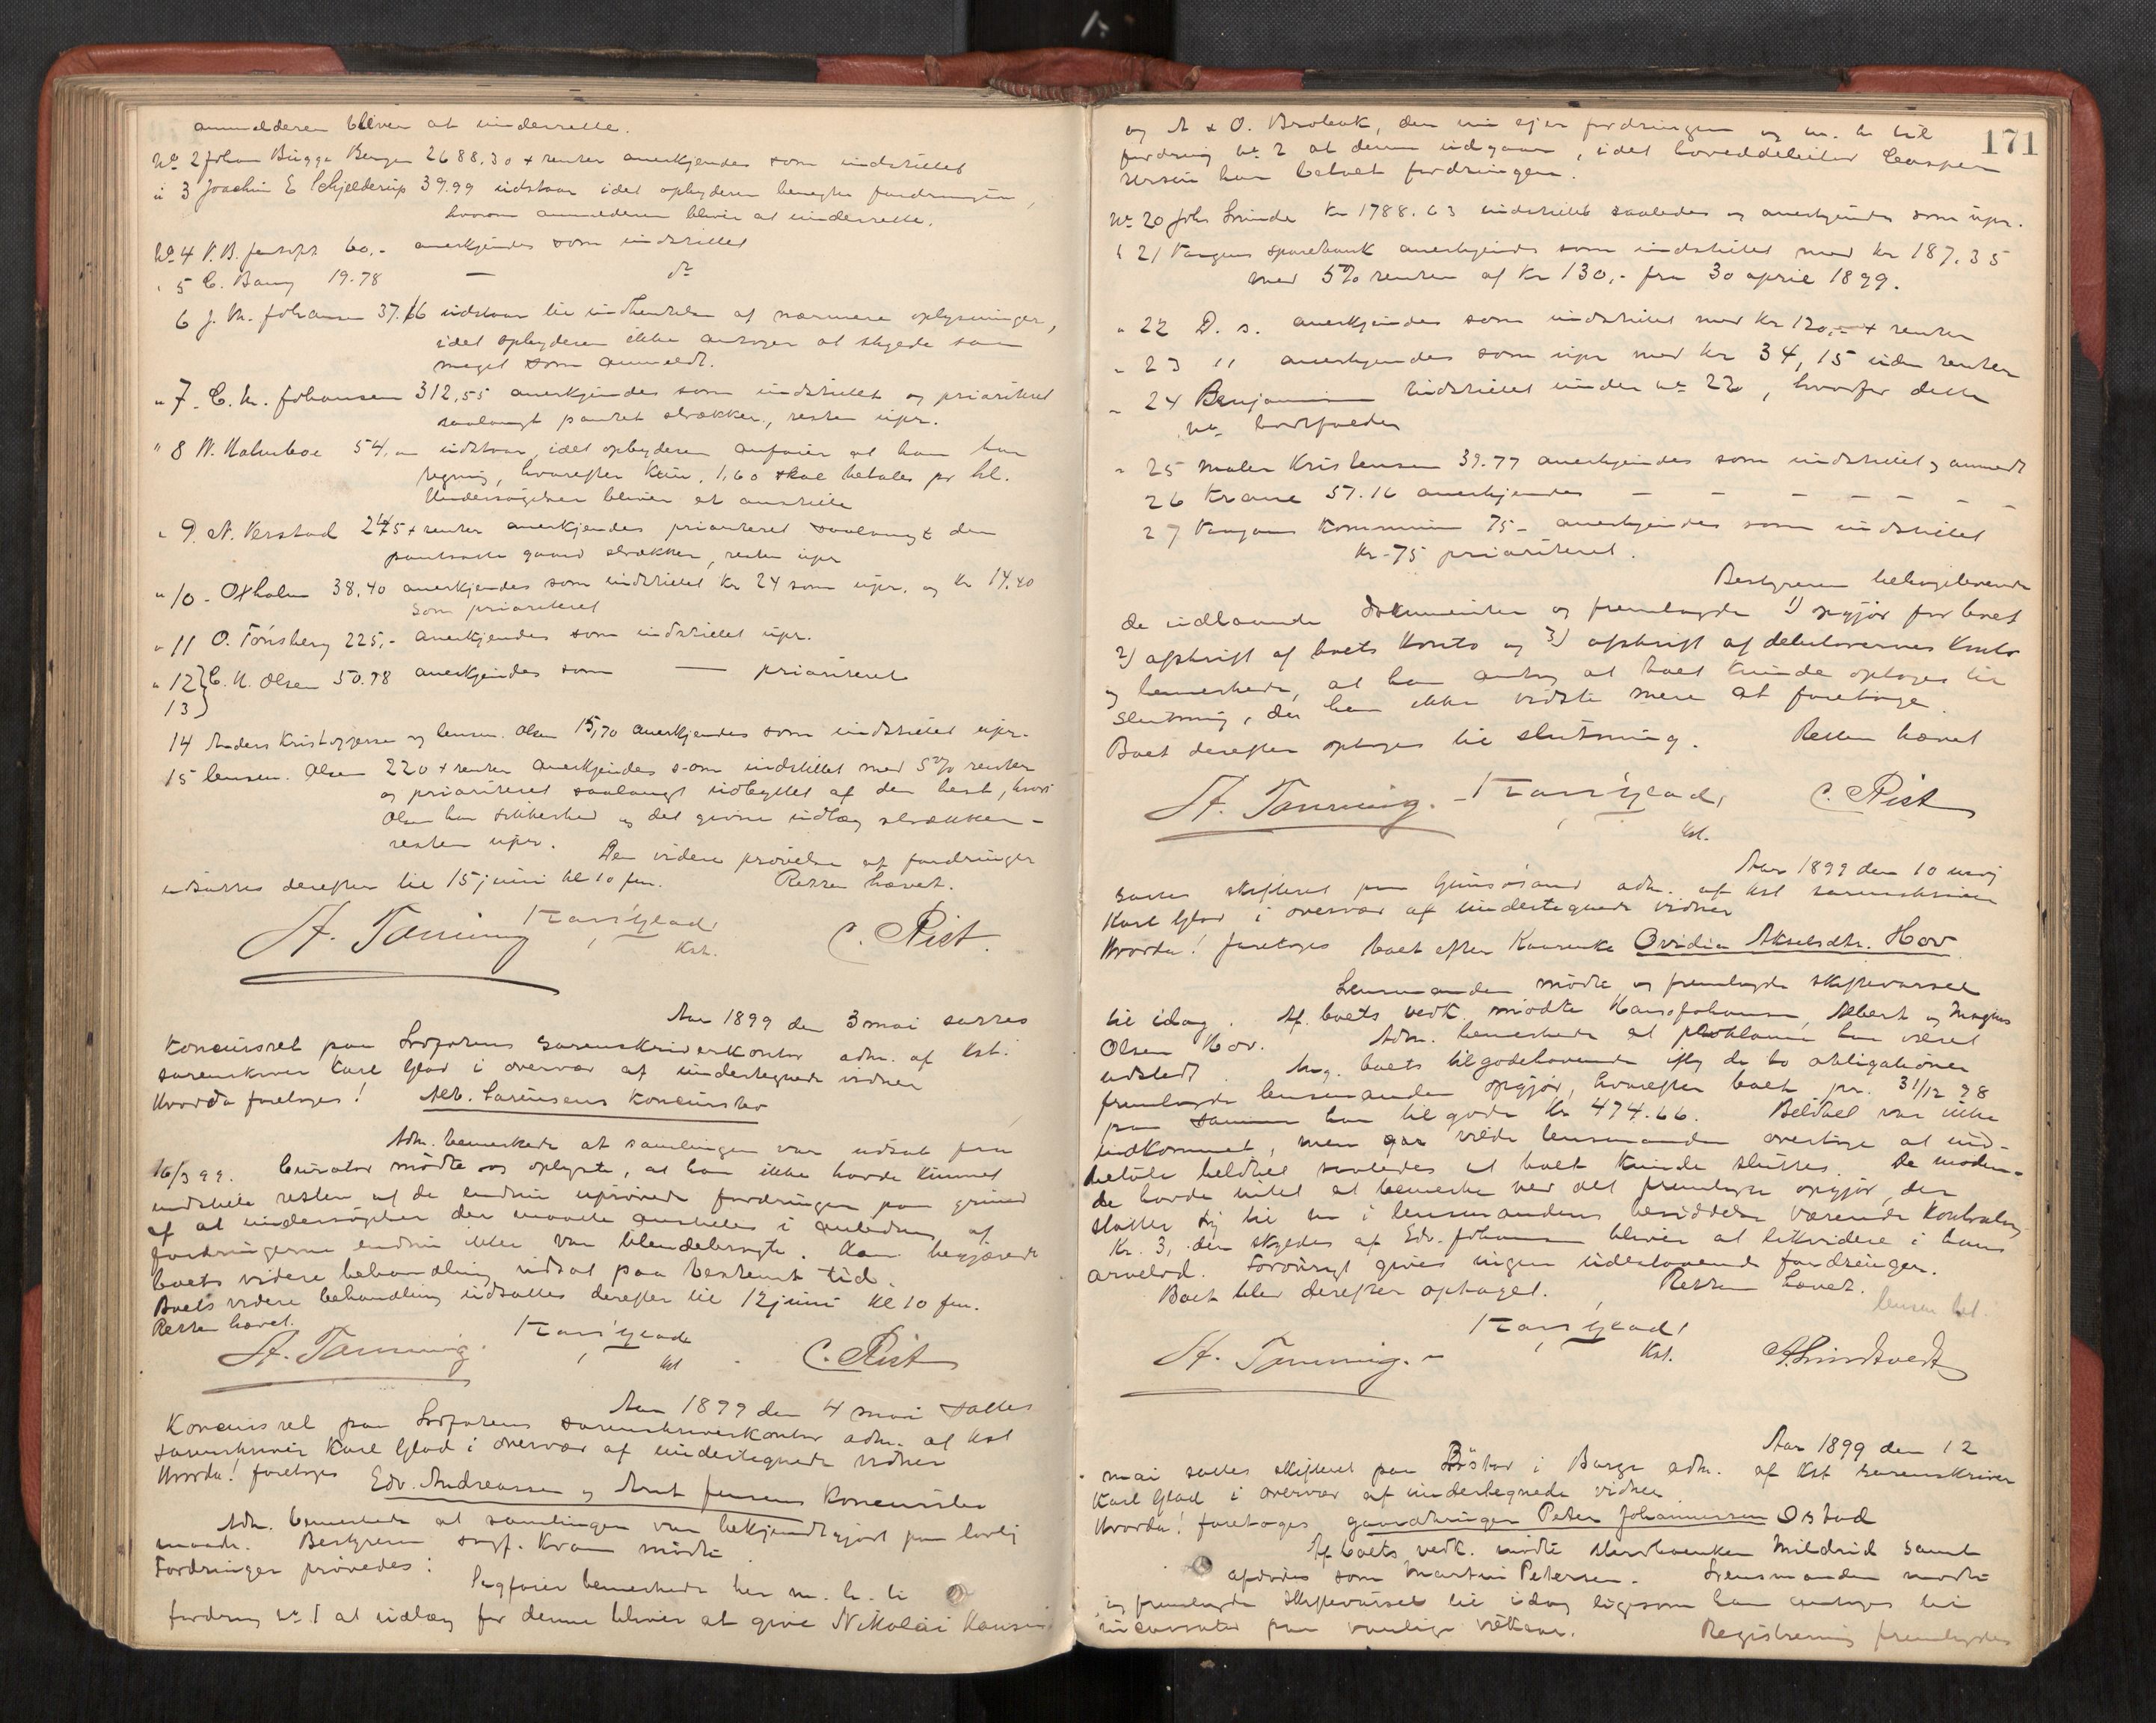 anmelderen bliver at underrette.
No 2 Johan Bugge Bergen 2688.30 + renter anerkjendes som indstillet
" 3 Joachim E Schjelderup 39.99 udstaar idet opbyderen benegter fordringen,
hvorom anmelderen bliver at underrette.
No 4 60.- anerkjendes som indstillet
" 5 C. Bang 19.78 — do
6 J. M. Johansen 37.66 udstaar til indhentelse af nærmere oplysninger,
idet opbyderen ikke antager at skylde saa
meget som anmeldt.
" 7. C. M. Johansen 312,55 anerkjendes som indstillet og prioriteret
saalangt pantet strækker, resten upr.
" 8 54, udstaar, idet opbyderen anfører at han har
regning, hvorefter kun 1,60 skal betales pr hl.
Undersøgelser bliver at anstille
" 9. N. Verstad 245 + renter anerkjendes prioriteret saalangt den
pantsatte gaard strækker, resten upr
" 10. Oxholm 38.40 anerkjendes som indstillet Kr 24 som upr. og Kr 14.40
som prioriteret
" 11 O. Tönsberg 225,- anerkjendes som indstillet upr.
" 12 } C. N. Olsen 50.98 anerkjendes som — prioriteret
13 }
14 Anders Kristoffersen og lensm. Olsen 15,70 anerkjendes som indstillet upr.
15 lensm. Olsen 220 + renter anerkjendes som indstillet med 5% renter
og prioriteret saalangt udbyttet af den hest, hvori
Olsen har sikkerhed og det givne udlæg strækker -
resten upr. Den videre prøvelse af fordringer
udsattes derefter til 15 juni kl 10 fm. Retten hævet.
A. Tanning Karl Glad C. Rist.
Kst.
Aar 1899 den 3 mai sattes
Koncursret paa Lofotens sorenskriverkontor adm. af kst.
sorenskriver Karl Glad i overvær af undertegnede vidner
Hvorda foretoges! Alb. Larensens Koncursbo
Adm. bemerkede at samlingen var udsat fra
16/3 99. Curator mødte og oplyste, at han ikke havde kunnet
indstille resten af de endnu uprøvede fordringer paa grund
af at undersøgelser der maatte anstilles i anledning af
fordringerne endnu ikke var tilendebragte. Han begjærede
boets videre behandling udsat paa bestemt tid.
Boets videre behandling udsattes derefter til 12 juni kl 10 fm.
Retten hævet.
A. Tanning. Karl Glad C. Rist
kst
Aar 1899 den 4 mai sattes
Koncursret paa Lofotens sorenskriverkontor adm. af kst
sorenskriver Karl Glad i overvær af undertegnede vidner
Hvorda! foretoges Edv. Andreassen og Arnt Jensens Koncursbo
Adm. bemerkede at samlingen var bekjendtgjort paa lovlig
maade. Bestyreren sagf. Kram mødte
Fordringer prøvedes:
Sagfører bemerkede her m. h. ti
fordring No 1 at udlæg for denne bliver at give Nikolai Hansen
171
og A & O. Brobak, der nu ejer fordringen og m. h. til
fordring No 2 at denne udgaar, idet hoveddebitor Casper
Iversen har betalt fordringen.
No 20 Johs Kr 1788.63 indstillet saaledes og anerkjendes som upr.
" 21 Vaagans sparebank anerkjendes som indstillet med kr 187.35
med 5% renter af Kr 130,- fra 30 april 1899.
" 22 D. s. anerkjendes som indstillet med kr 120,- + renter
" 23 " anerkjendes som upr med kr 34,15 uden renter
" 24 Benjamin indstillet under No 22, hvorfor dette
No bortfalder
" 25 Maler Kristensen 39.77 anerkjendes som indstillet og anmeldt
26 Krane 57.16 anerkjendes — — — — — —
27 Vaagans Kommune 75- anerkjendes som indstillet
Kr 75 prioriteret.
Bestyreren tilbageleverede
de udlaante dokumenter og fremlagde 1) opgjør for boet
2) afskrift af boets konto og 3) afskrift af debitorernes konto
og bemerkede, at han antog at boet kunde optages til
slutning, da han ikke vidste mere at foretage.
Boet derefter optages til slutning. Retten hævet
A. Tanning. Karl Glad, C. Rist
kst.
Aar 1899 den 10 maj
sattes skifteret paa Gimsösand adm. af kst sorenskriver
Karl Glad i overvær af undertegnede vidner
Hvorda! foretoges boet efter Kaarenke Ovidia Akselsdtr. Hov
Lensmanden mødte og fremlagde skiftevarsel
til idag. Af boets vedk. mødte Hans Johansen, Albert og Magnus
Olsen Hov. Adm. bemerkede at proklama har været
udstedt. Ang. boets tilgodehavende iflg de to obligationer
fremlagde lensmanden opgjør, hvorefter boet pr. 31/12 98
paa samme har tilgode Kr 474.66. Beløbet var ikke
indkommet, men vilde lensmanden overtage at ind-
betale beløbet saaledes at boet kunde sluttes. De møden-
de havde intet at bemerke ved det fremlagte opgjør, der
støtter sig til en i lensmandens besiddelse værende Kontrabog
Kr. 3, der skyldes af Edv. Johansen bliver at likvidere i hans
arvelod. Forövrigt gives ingen udestaaende fordringer.
Boet blev derefter optaget. Retten hævet.
lensm bet.
A. Tanning. Karl Glad A. Lindtvedt
Kst.
Aar 1899 den 12
mai sattes skifteret paa Böstad i Borge adm. af Kst sorenskriver
Karl Glad i overvær af undertegnede vidner
Hvorda! foretoges gaardbruger Peter Johannessen Ostad
Af boets vedk. mødte Mildrid samt
afdødes søn Martin Petersen. Lensmanden mødte
og fremlagde skiftevarsel til idag ligesom han antoges til
incassator paa vanlige vilkaar. Registrering fremlagdes